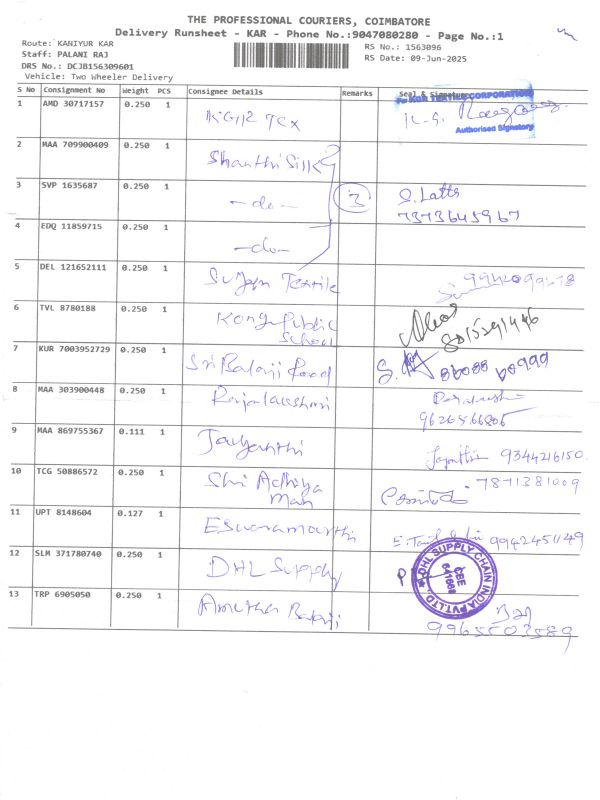 THE PROFESSIONAL COURIERS, COIMBATORE
Delivery Runsheet - KAR - Phone No.:9047080280 - Page No.:1
Route: KANIYUR KAR
RS No.: 1563096
Staff: PALANI RAJ
RS Date: 09-Jun-2025
DRS No.: DCJB156309601
Vehicle: Two Wheeler Delivery
S No Consignment No Weight PCS Consignee Details Remarks Seal & Signature
1 AMD 30717157 0.250 1 KG12 Tex
TEXTILE CORPORATION
K.G.
Authorised Signatory
2 MAA 709900409 0.250 1 Shanthi Silk
3 SVP 1635687 0.250 1 -do- 3 S. Latts
7373645967
4 EDQ 11859715 0.250 1 -do-
5 DEL 121652111 0.250 1 Sujan Textile
6 TVL 8780188 0.250 1 Kongu Public
School
8015291446
7 KUR 7003952729 0.250 1 Sri Balaji Food
8 MAA 303900448 0.250 1 Rajalakshmi
9626566806
9 MAA 869755367 0.111 1 Jayanthi Jayanthi 9344216150.
10 TCG 50886572 0.250 1 Shri Adhiya 7871381009
11 UPT 8148604 0.127 1 Eswaramoorthi 9942451149
12 SLM 371780740 0.250 1 DHL Supply
DHL SUPPLY CHAIN INDIA PVT.LTD
CBE
641668
13 TRP 6905050 0.250 1 Amutha Balaji
9965502589